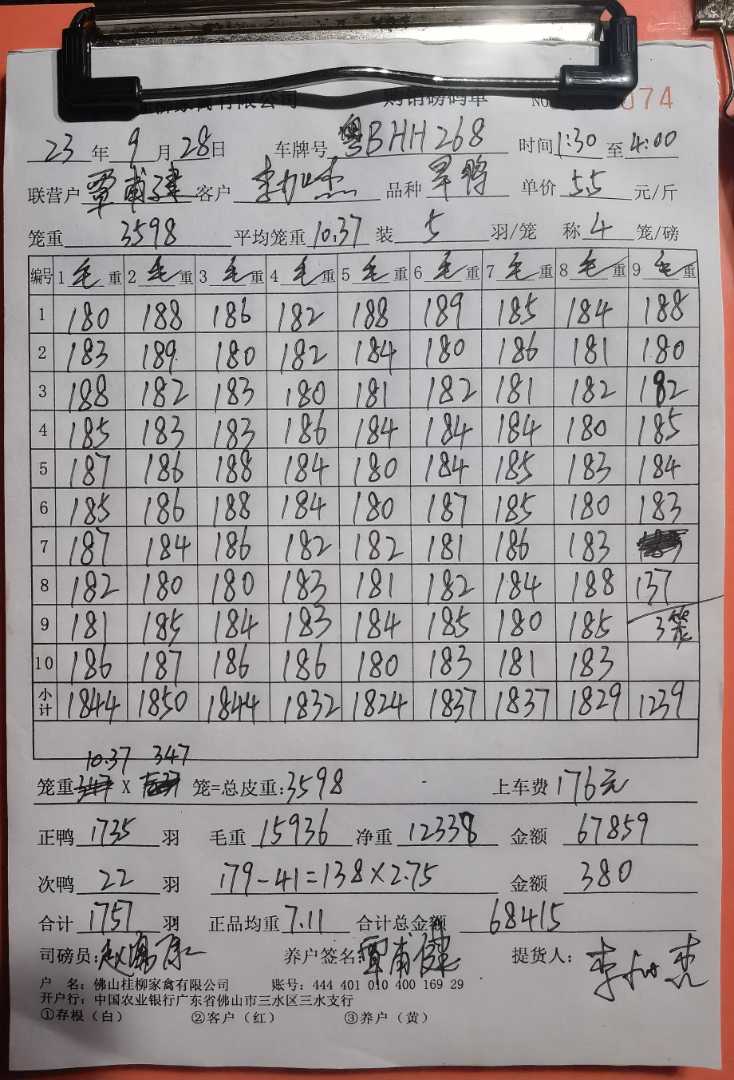 有限公司 购销磅码单 NO 074
23 年 9 月 28 日 车牌号 粤BHH268 时间 1:30 至 4:00
联营户 覃甫健 客户 李加杰 品种 旱鸭 单价 5.5 元/斤
笼重 3598 平均笼重 10.37 装 5 羽/笼 称 4 笼/磅
编号 1 毛 重 2 毛 重 3 毛 重 4 毛 重 5 毛 重 6 毛 重 7 毛 重 8 毛 重 9 毛 重
1 180 188 186 182 188 189 185 184 188
2 183 189 180 182 184 180 186 181 180
3 188 182 183 180 181 182 181 182 182
4 185 183 183 186 184 184 184 180 185
5 187 186 188 184 180 184 185 183 184
6 185 186 188 184 180 187 185 180 183
7 187 184 186 182 182 181 186 183
8 182 180 180 183 181 182 184 188 137
9 181 185 184 183 184 185 180 185 3笼
10 186 187 186 186 180 183 181 183
小计 1844 1850 1844 1832 1824 1837 1837 1829 1239
10.37 347
笼重 X 笼=总皮重:3598 上车费 176元
正鸭 1735 羽 毛重 15936 净重 12338 金额 67859
次鸭 22 羽 179-41=138×2.75 金额 380
合计 1757 羽 正品均重 7.11 合计总金额 68415
司磅员: 养户签名:覃甫健 提货人: 李加杰
户 名:佛山桂柳家禽有限公司 账号:444 401 010 400 169 29
开户行:中国农业银行广东省佛山市三水区三水支行
①存根(白) ②客户(红) ③养户(黄)